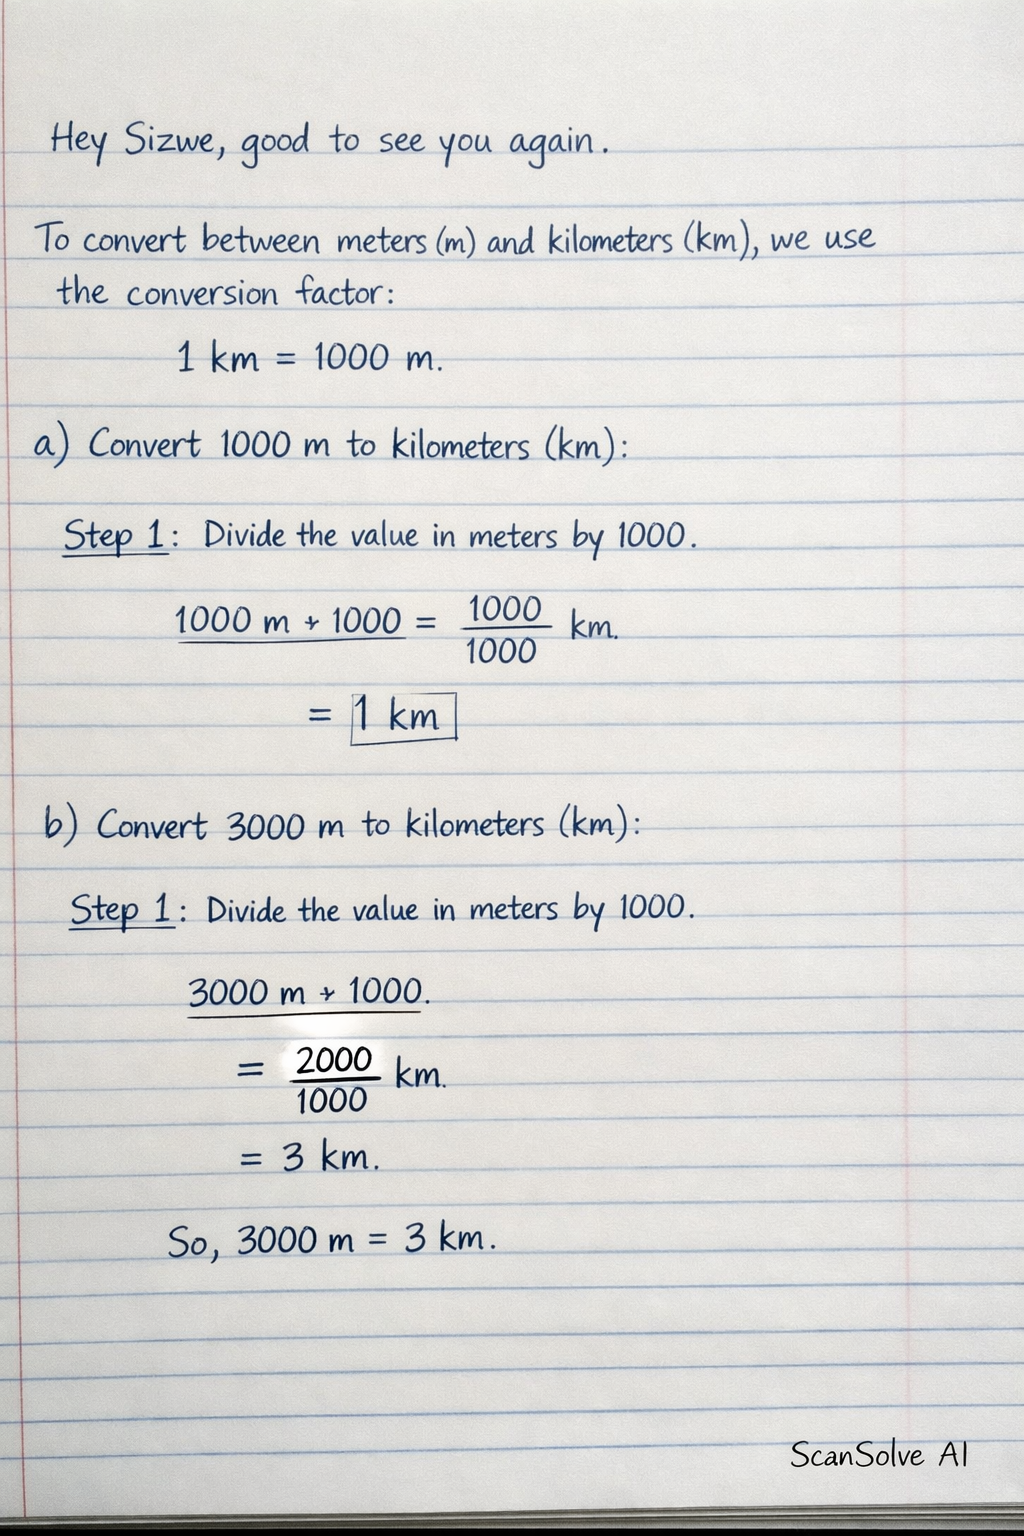 Hey Sizwe, good to see you again.
To convert between meters (m) and kilometers (km), we use
the conversion factor:
1 km = 1000 m.
a) Convert 1000 m to kilometers (km):
Step 1: Divide the value in meters by 1000.
1000 m + 1000 = 1000/1000 km.
= 1 km
b) Convert 3000 m to kilometers (km):
Step 1: Divide the value in meters by 1000.
3000 m + 1000.
= 2000/1000 km.
= 3 km.
So, 3000 m = 3 km.
ScanSolve AI